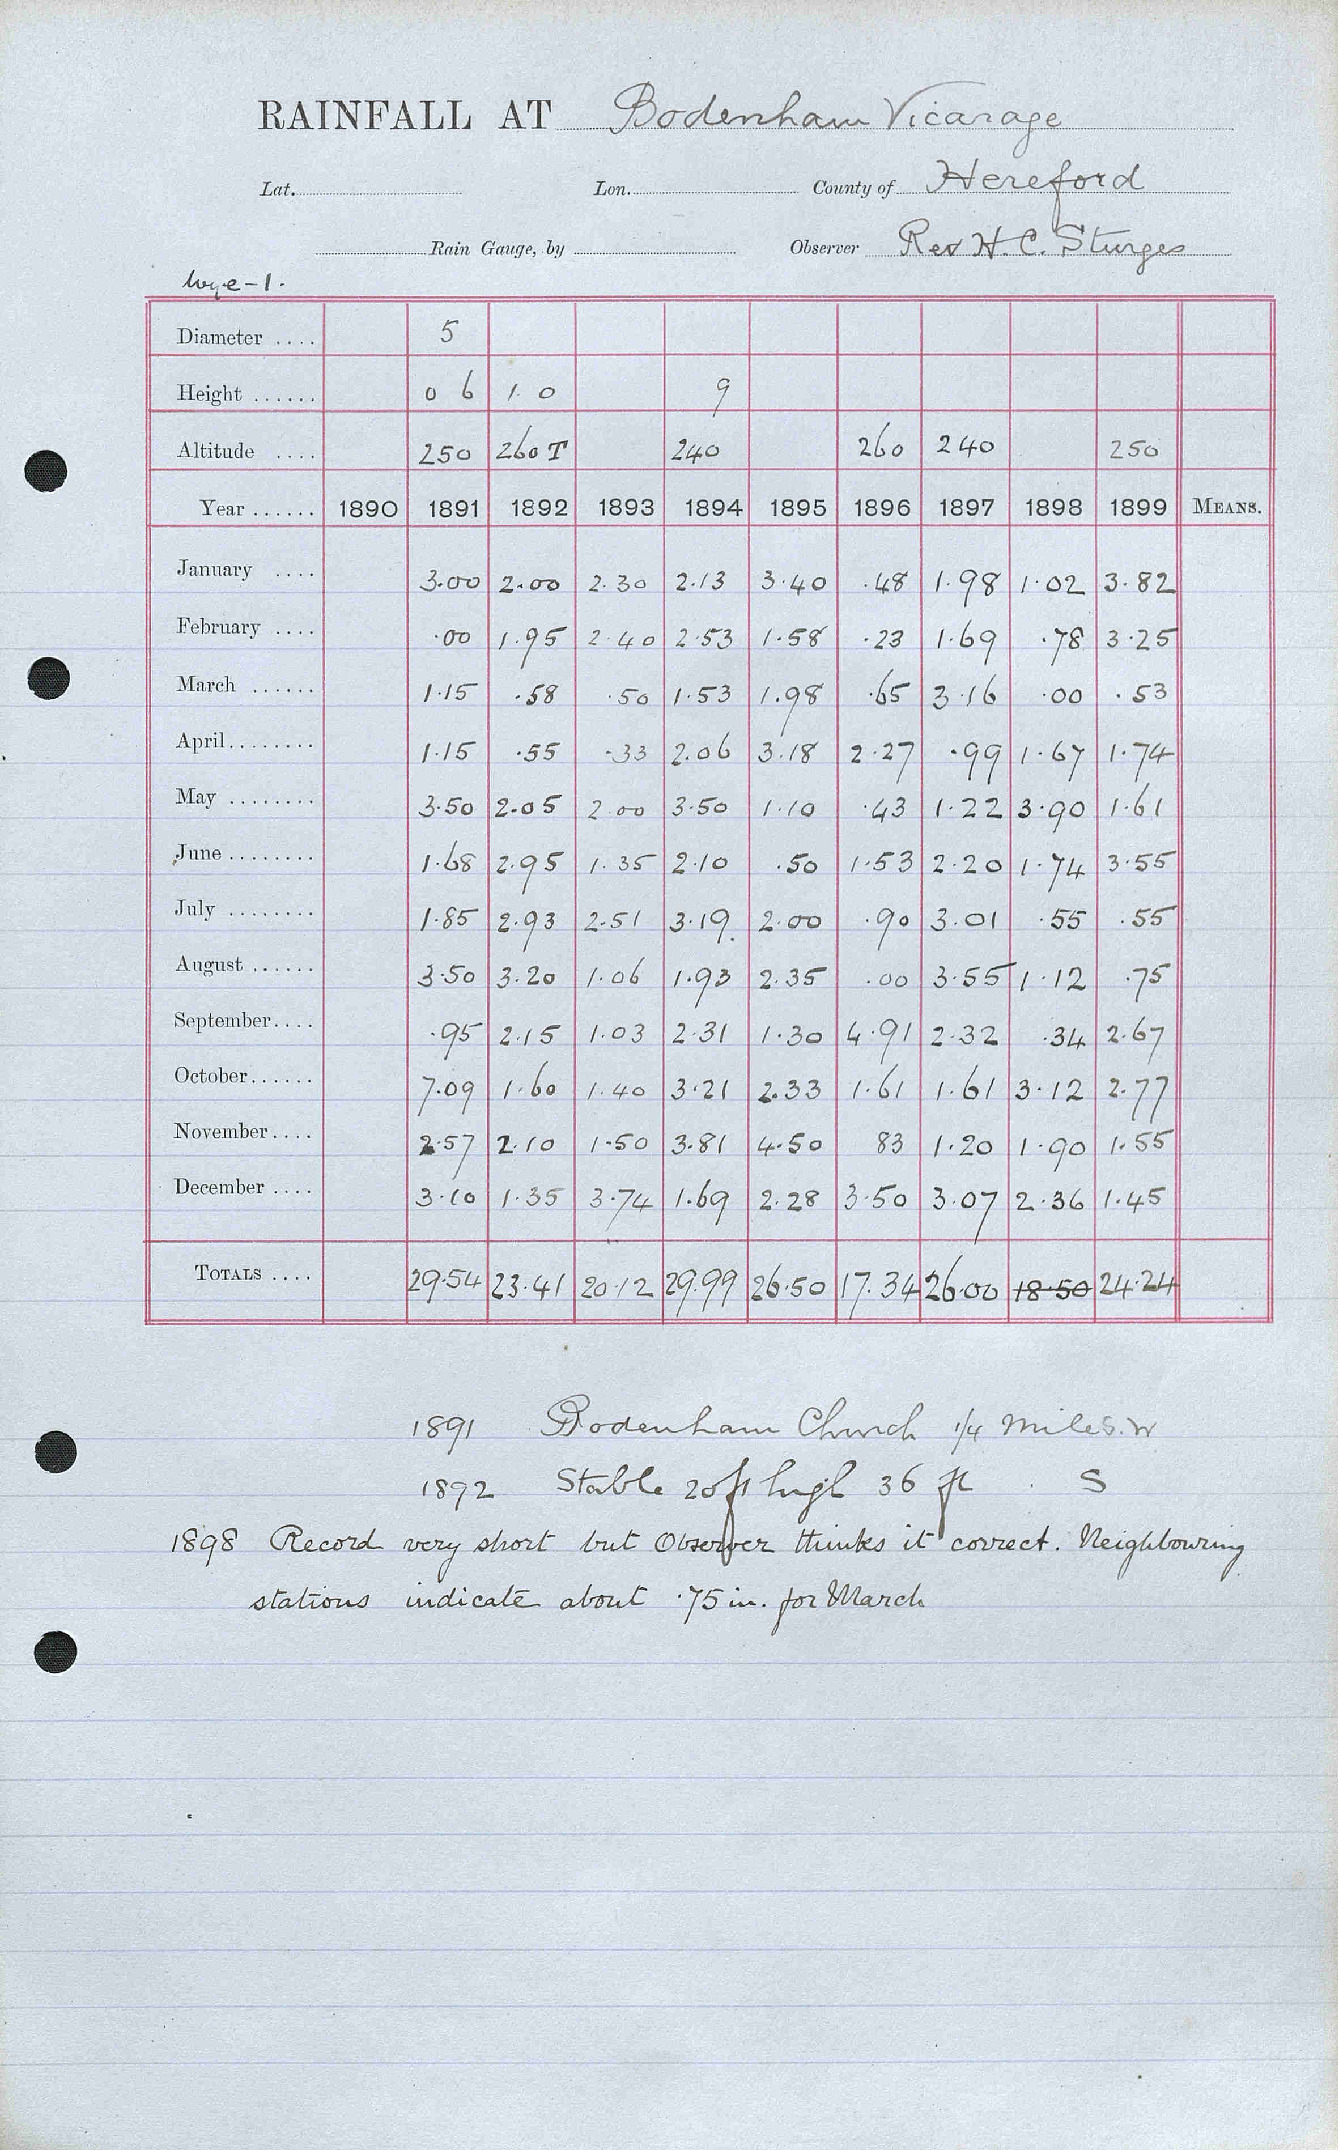 RAINFALL AT Bodenham Vicarage
Lat. Lon. County of Hereford
Rain Gauge, by Observer Rev H. C. Sturges
Wye-1.
Diameter .... 5
Height ...... 0 6 1. 0 9
Altitude .... 250 260 T 240 260 240 250
Year ...... 1890 1891 1892 1893 1894 1895 1896 1897 1898 1899 MEANS.
January .... 3.00 2.00 2.30 2.13 3.40 .48 1.98 1.02 3.82
February .... .00 1.95 2.40 2.53 1.58 .23 1.69 .78 3.25
March ...... 1.15 .58 .50 1.53 1.98 .65 3.16 .00 .53
April........ 1.15 .55 .33 2.06 3.18 2.27 .99 1.67 1.74
May ........ 3.50 2.05 2.00 3.50 1.10 .43 1.22 3.90 1.61
June ........ 1.68 2.95 1.35 2.10 .50 1.53 2.20 1.74 3.55
July ........ 1.85 2.93 2.51 3.19 2.00 .90 3.01 .55 .55
August ...... 3.50 3.20 1.06 1.93 2.35 .00 3.55 1.12 .75
September.... .95 2.15 1.03 2.31 1.30 4.91 2.32 .34 2.67
October...... 7.09 1.60 1.40 3.21 2.33 1.61 1.61 3.12 2.77
November.... 2.57 2.10 1.50 3.81 4.50 83 1.20 1.90 1.55
December .... 3.10 1.35 3.74 1.69 2.28 3.50 3.07 2.36 1.45
TOTALS .... 29.54 23.41 20.12 29.99 26.50 17.34 26.00 18.50 24.24
1891 Bodenham Church 1/4 mile S.W
1892 Stable 20 ft high 36 ft S
1898 Record very short but Observer thinks it correct. Neighbouring
stations indicate about .75 in. for March